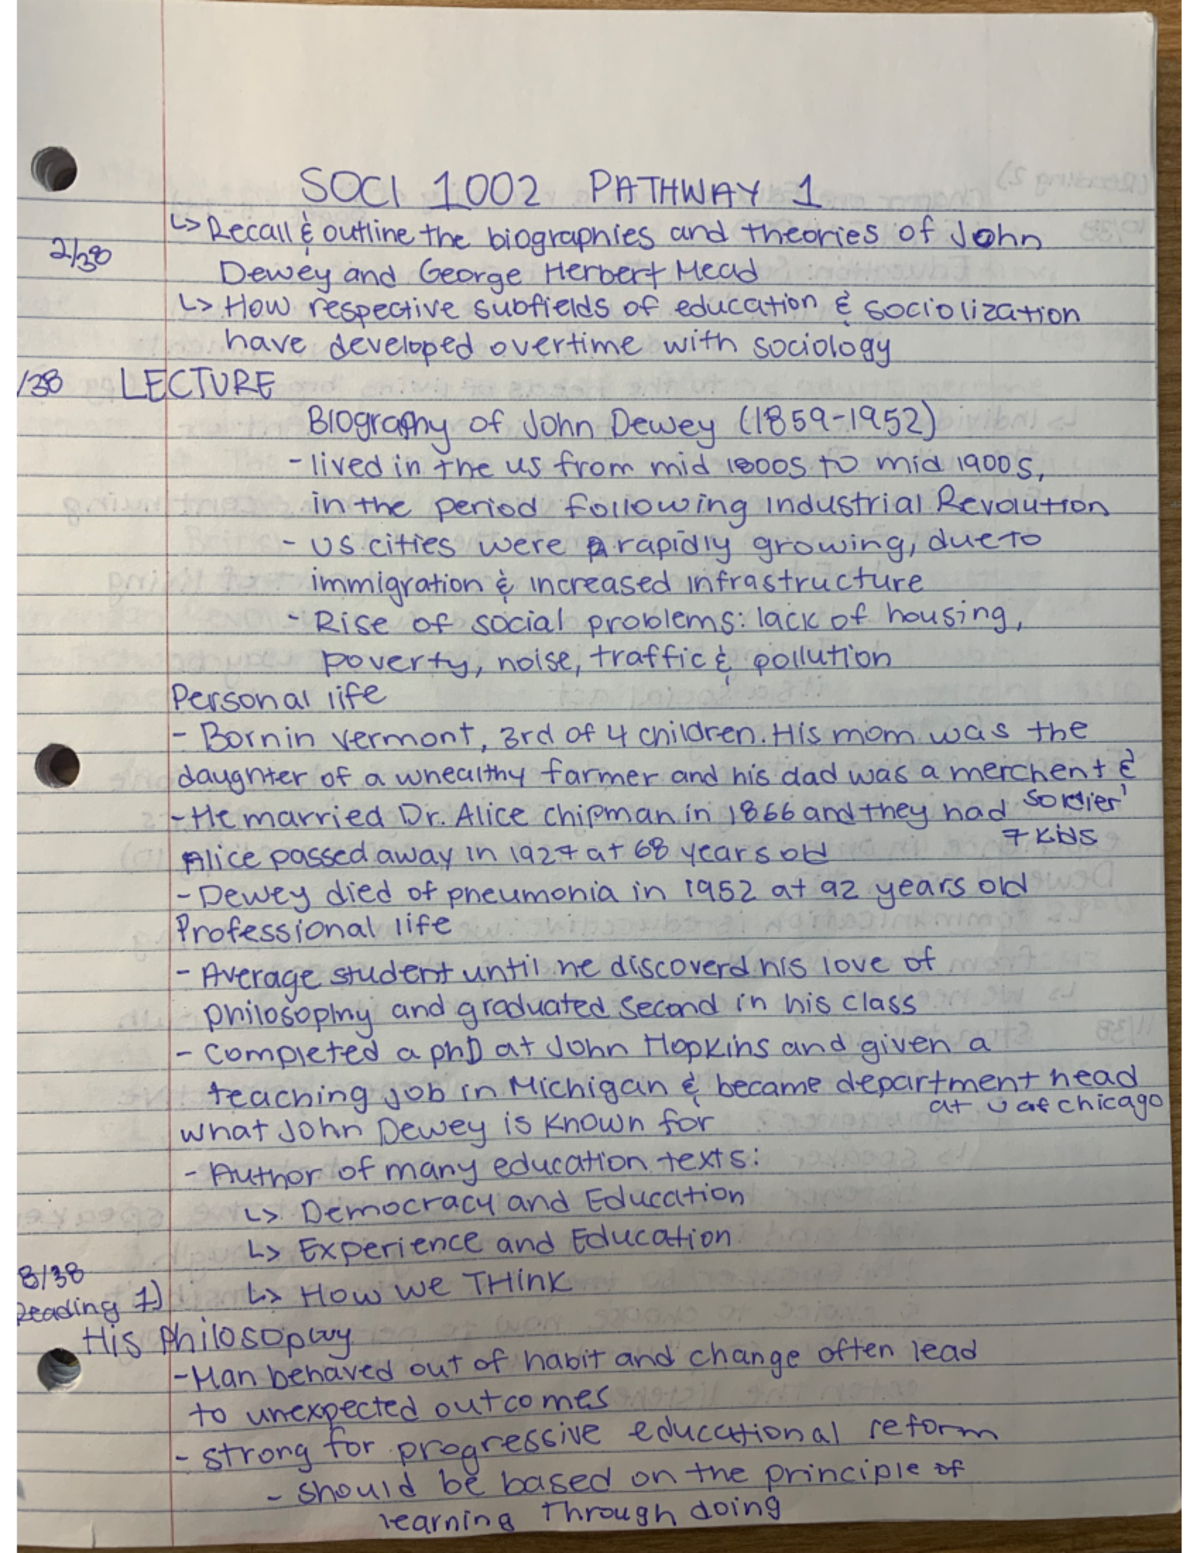 SOCI 1002 PATHWAY 1
↳ Recall & outline the biographies and theories of John
2/38
Dewey and George Herbert Mead
↳ How respective subfields of education & sociolization
have developed overtime with sociology
/38 LECTURE
Biography of John Dewey (1859-1952)
- lived in the US from mid 1800s to mid 1900s,
in the period following industrial Revolution
- US cities were rapidly growing, due to
immigration & increased infrastructure
- Rise of social problems: lack of housing,
poverty, noise, traffic & pollution
Personal life
- Born in vermont, 3rd of 4 children. His mom was the
daugnter of a wnealthy farmer and his dad was a merchent &
soldier
- He married Dr. Alice chipman in 1866 and they had
7 kids
Alice passed away in 1927 at 68 years old
- Dewey died of pneumonia in 1952 at 92 years old
Professional life
- Average student until he discoverd his love of
philosophy and graduated second in his class
- completed a phD at John Hopkins and given a
teaching job in Michigan & became department head
at U of chicago
what John Dewey is known for
- Author of many education texts:
↳ Democracy and Education
↳ Experience and Education
8/38
↳ How we THink
Reading 1)
His philosophy
- Man behaved out of habit and change often lead
to unexpected outcomes
- strong for progressive educational reform
- should be based on the principle of
learning through doing